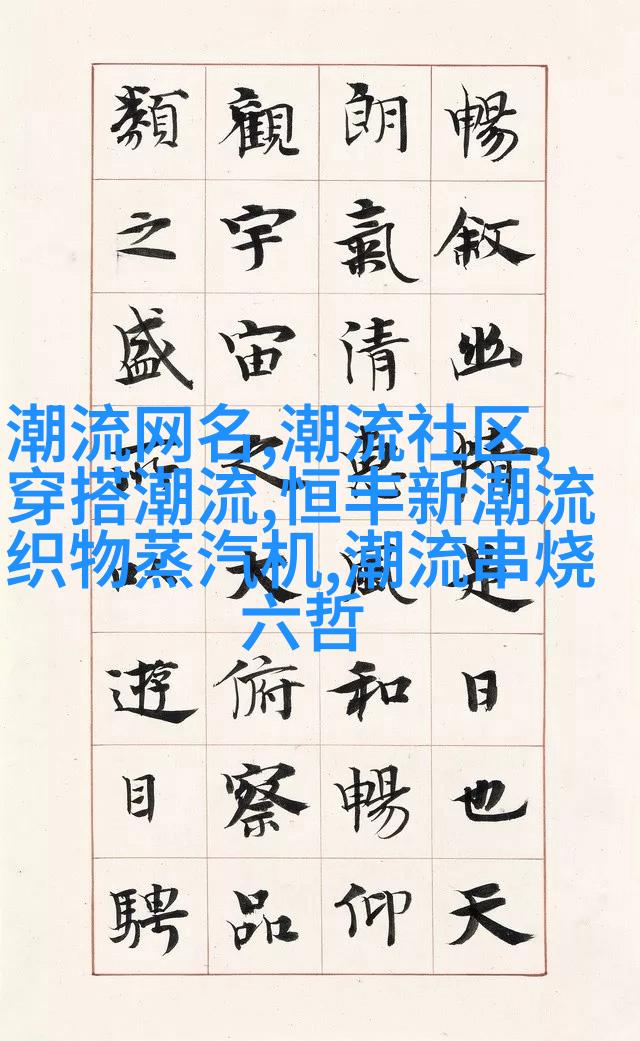 暢敘幽情是日也天
朗氣清惠風和暢仰
觀宇宙之大俯察品
類之盛所以遊目騁
潮流网名,潮流社区,
穿搭潮流,恒丰新潮流
织物蒸汽机,潮流串烧
六哲